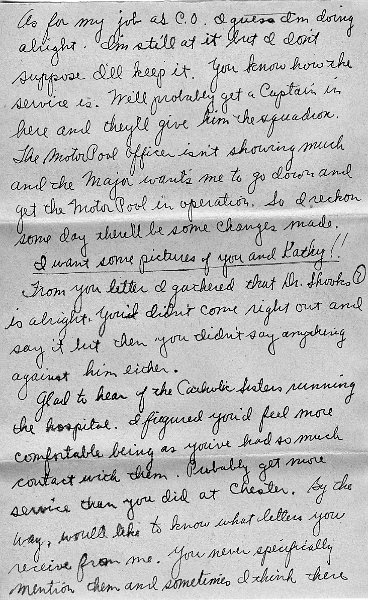 As for my job as C.O. I guess I'm doing
alright. I'm still at it but I don't
suppose I'll keep it. You know how the
service is. We'll probably get a Captain in
here and they'll give him the squadron.
The Motor Pool Officer isn't showing much
and the Major wants me to go down and
get the Motor Pool in operation. So I reckon
some day there'll be some changes made.
I want some pictures of you and Kathy!!
From you letter I gathered that Dr. Shooks (?)
is alright. You'd didn't come right out and
say it but then you didn't say anything
against him either.
Glad to hear of the Catholic Sisters running
the hospital. I figured you'd feel more
comfortable being as you've had so much
contact with them. Probably get more
service than you did at Chester. By the
way, would like to know what letters you
receive from me. You never specifically
mention them and sometimes I think there